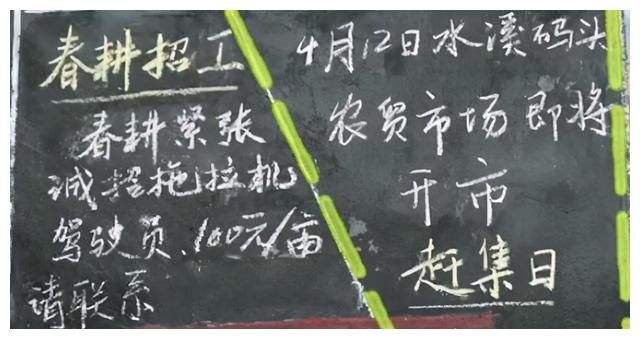 春耕招工
春耕紧张
诚招拖拉机
驾驶员、100元/亩
请联系
4月12日水溪码头
农贸市场即将
开市
赶集日